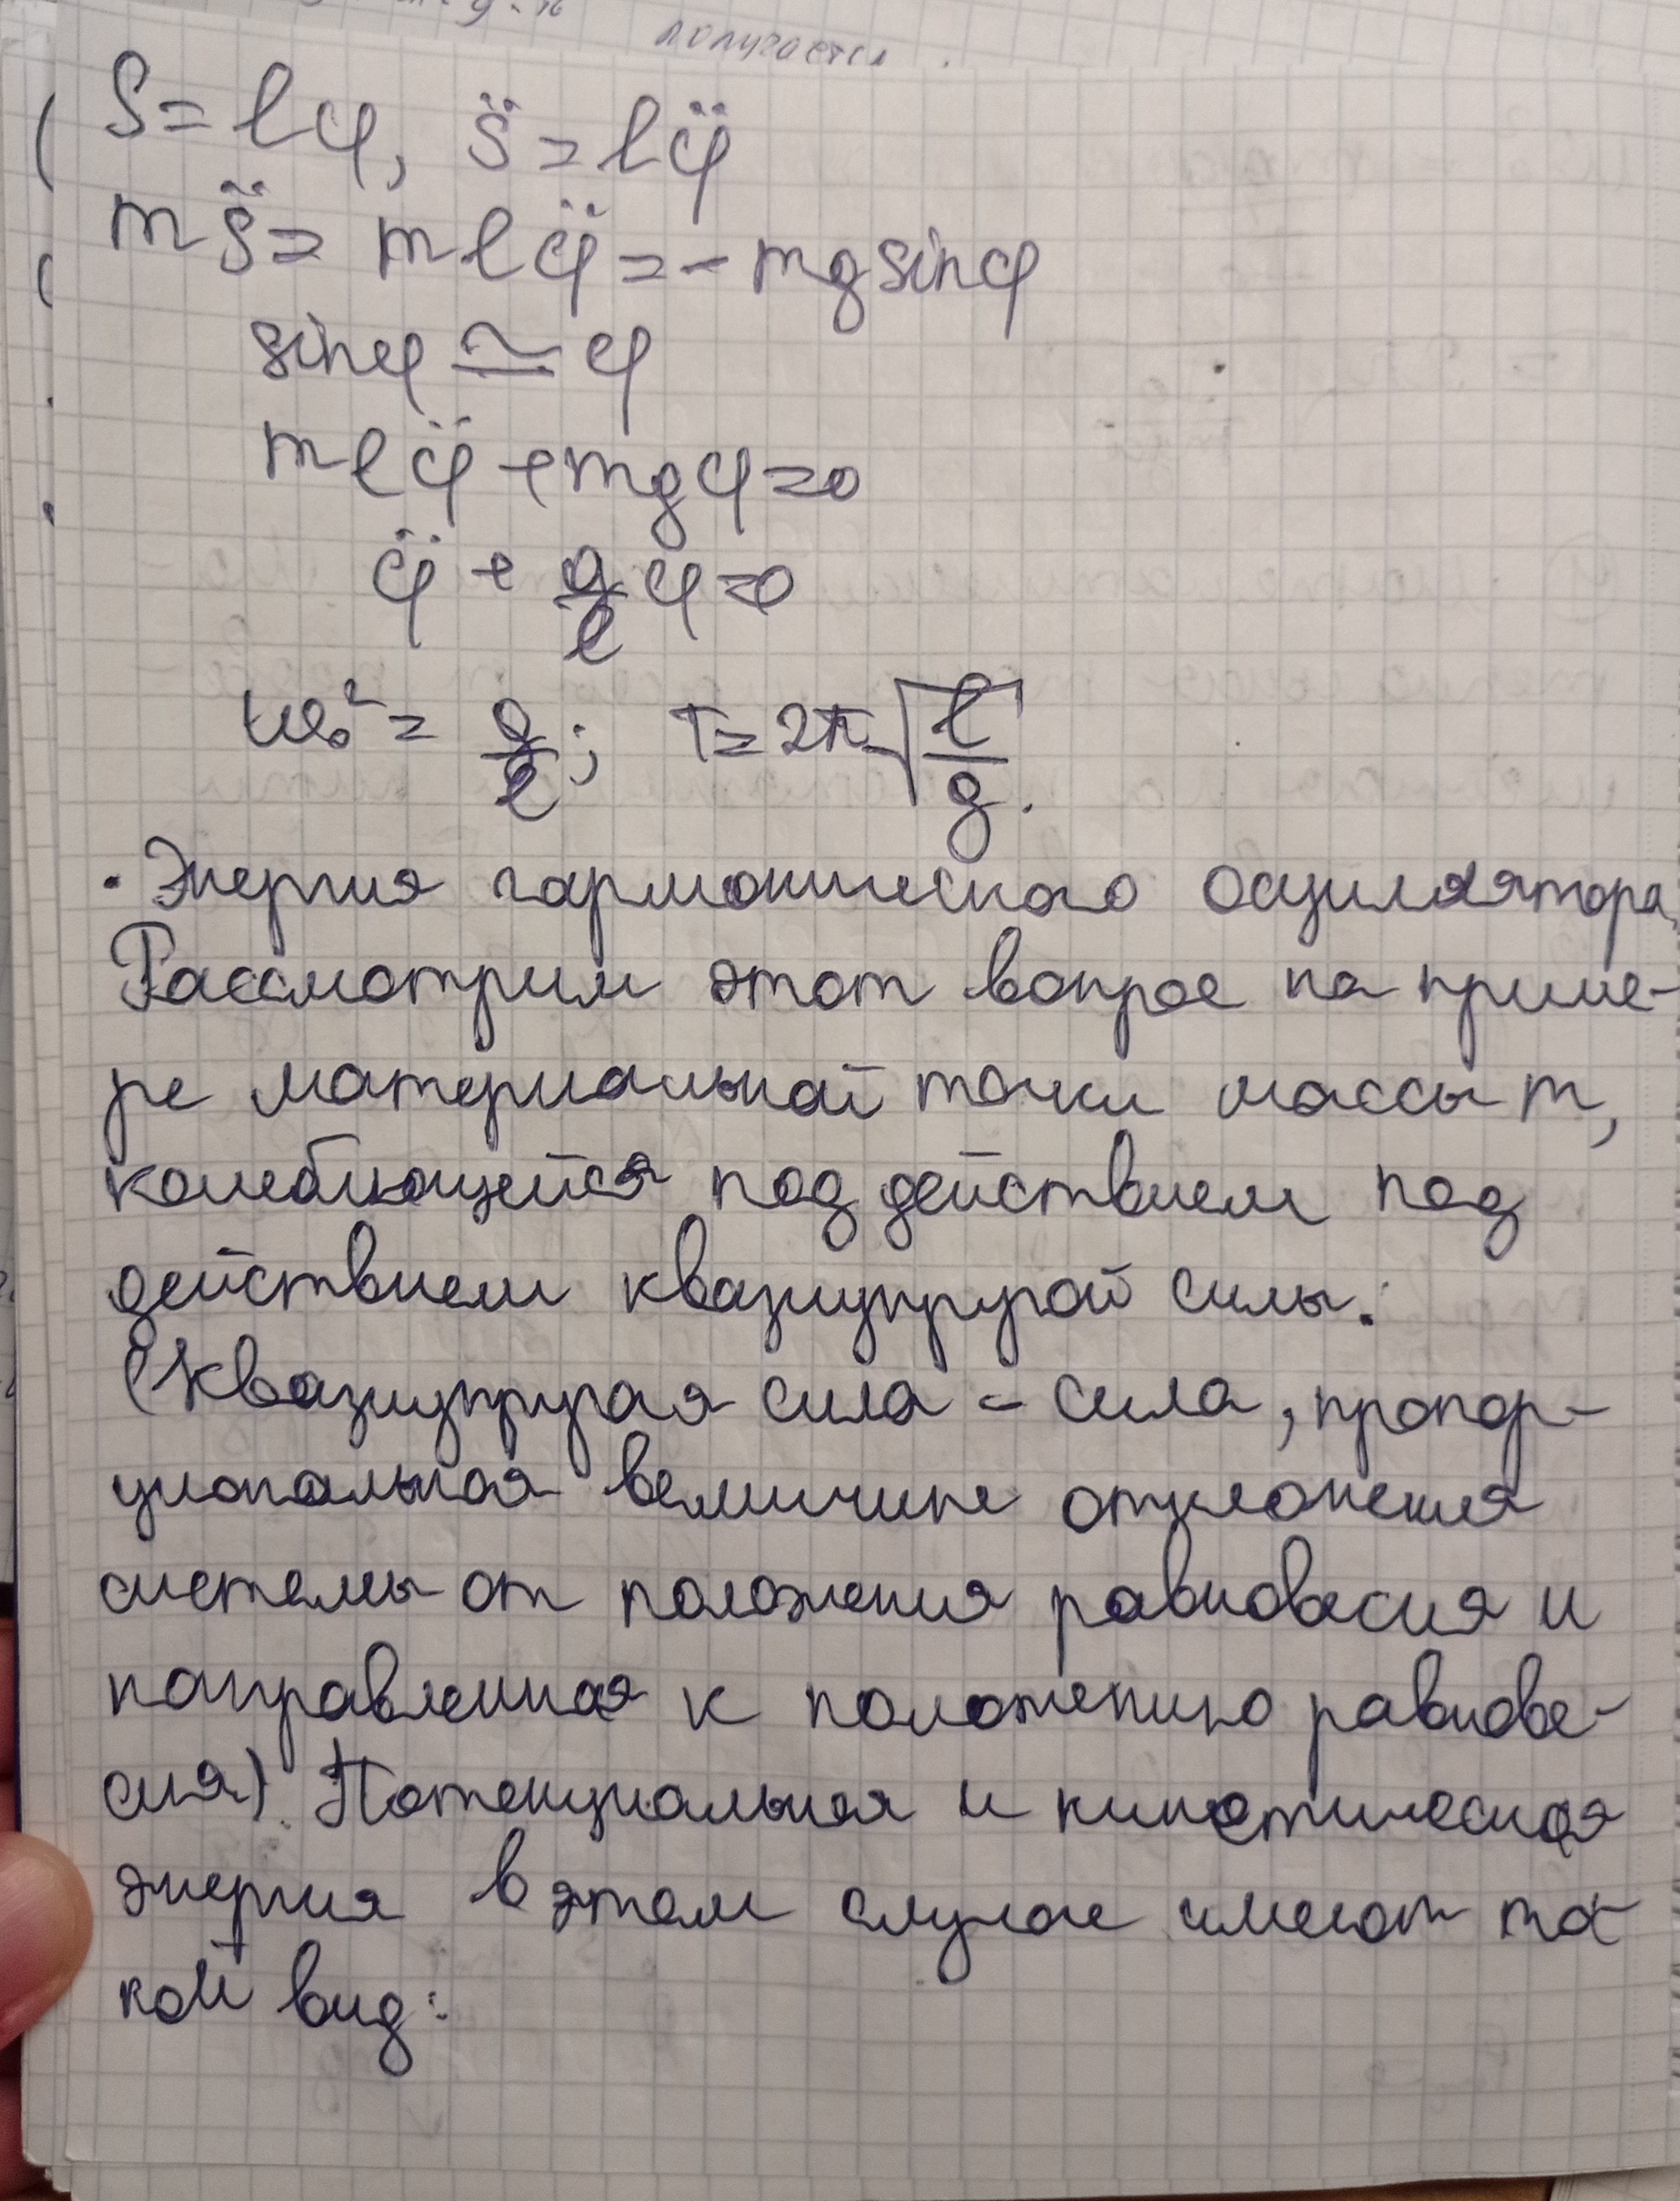 получается
S = lφ, s̈ = lφ̈
m s̈ = m l φ̈ = - mg sinφ
sinφ ≅ φ
m l φ̈ + mgφ = 0
φ̈ + g/l φ = 0
ω₀² = g/l; T = 2π √(l/g).
· Энергия гармонического осциллятора.
Рассмотрим этот вопрос на приме-
ре материальной точки массы m,
колеблющейся под действием под
действием квазиупругой силы.
(Квазиупругая сила - сила, пропор-
циональная величине отклонения
системы от положения равновесия и
направленная к положению равнове-
сия). Потенциальная и кинетическая
энергия в этом случае имеют та-
кой вид: